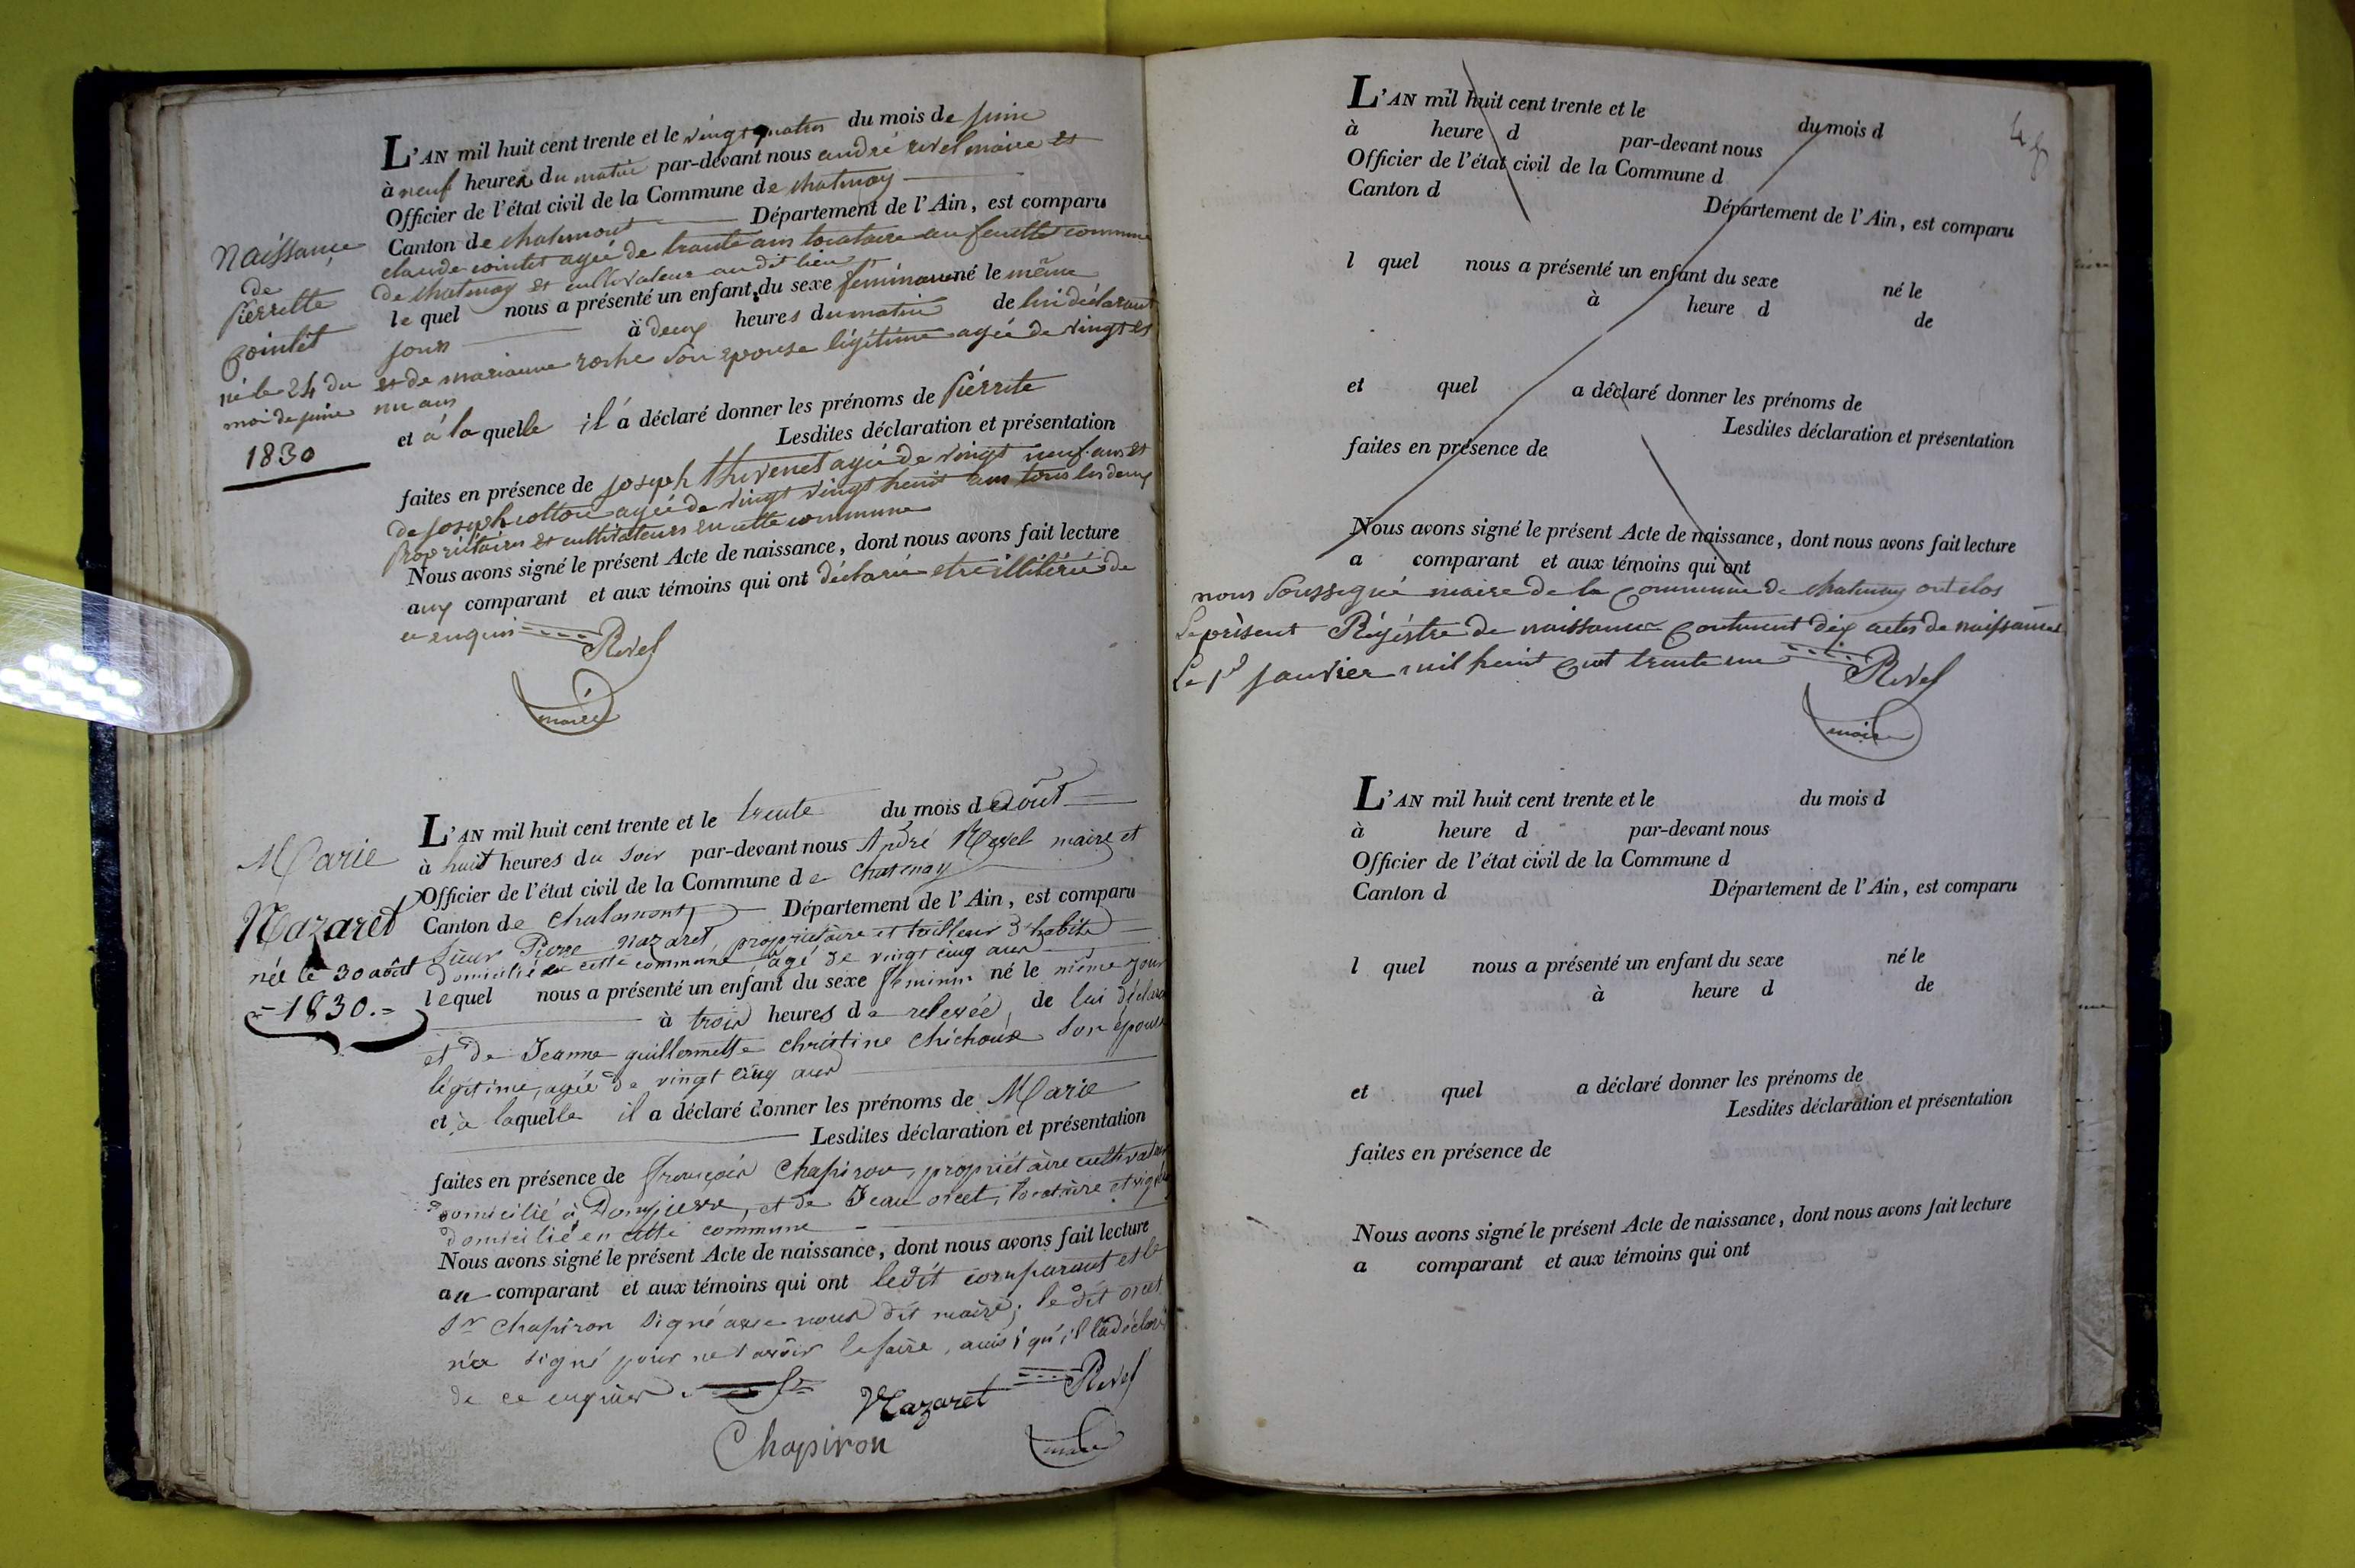 L'AN mil huit cent trente et le vingt quatre du mois de juin
à neuf heures du matin par-devant nous andré revel maire et
Officier de l'état civil de la Commune de chatenay
Canton de chalamont Département de l'Ain, est comparu
claude cointet agé de trante ans locataire au commune
de chatenay et cultivateur au dit lieu
le quel nous a présenté un enfant du sexe féminin né le même
jour à deux heures du matin de lui déclarant
et de marianne roche son epouse légitime agée de vingt et
un ans
et à la quelle il a déclaré donner les prénoms de Piérrete
Lesdites déclaration et présentation
faites en présence de joseph thevenet agé de vingt neuf ans et
de joseph cotton agé de vingt vingt huit ans tous les deux
propriétaires et cultivateurs en cette commune
Nous avons signé le présent Acte de naissance, dont nous avons fait lecture
aux comparant et aux témoins qui ont déclaré etre illitérés de
ce enquis Revel
maire
Naissance
de
Pierrette
Cointet
né le 24 du
moi de juin
1830
L'AN mil huit cent trente et le trente du mois d'Août
à huit heures du soir par-devant nous André Revel maire et
Officier de l'état civil de la Commune de Chatenay
Canton de Chalamont, Département de l'Ain, est comparu
Sieur Pierre Nazaret, propriétaire et tailleur d'habits
domicilié en cette commune âgé de vingt cinq ans
lequel nous a présenté un enfant du sexe féminin né le même jour
à trois heures de relevée, de lui déclarant
et de Jeanne guillermette christine Chichoux son épouse
légitime, agée de vingt cinq ans
et à laquelle il a déclaré donner les prénoms de Marie
Lesdites déclaration et présentation
faites en présence de françois Chapiron, propriétaire cultivateur
domicilié à Dompierre, et de Jean orcet, locataire et
domicilié en cette commune
Nous avons signé le présent Acte de naissance, dont nous avons fait lecture
au comparant et aux témoins qui ont ledit comparant et le
Sr Chapiron signé avec nous dit maire; le dit orcet
n'a signé pour ne savoir le faire, ainsi qu'il l'a déclaré
de ce enquis.
Nazaret Revel
Chapiron maire
Marie
Nazaret
née le 30 août
1830.
L'AN mil huit cent trente et le du mois d
à heure d par-devant nous
Officier de l'état civil de la Commune d
Canton d Département de l'Ain, est comparu
l quel nous a présenté un enfant du sexe né le
à heure d de
et quel a déclaré donner les prénoms de
Lesdites déclaration et présentation
faites en présence de
Nous avons signé le présent Acte de naissance, dont nous avons fait lecture
a comparant et aux témoins qui ont
nous soussigné maire de la Commune de chatenay ont clos
Le présent Régistre de naissance Contenent dix actes de naissances
Le 1er janvier mil huit Cent trente un Revel
maire
L'AN mil huit cent trente et le du mois d
à heure d par-devant nous
Officier de l'état civil de la Commune d
Canton d Département de l'Ain, est comparu
l quel nous a présenté un enfant du sexe né le
à heure d de
et quel a déclaré donner les prénoms de
Lesdites déclaration et présentation
faites en présence de
Nous avons signé le présent Acte de naissance, dont nous avons fait lecture
a comparant et aux témoins qui ont